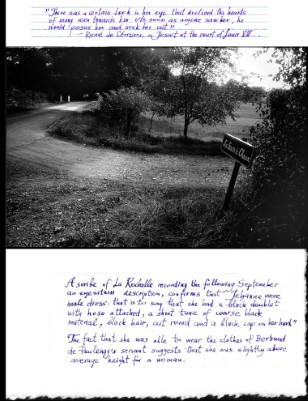 "There was a certain look in her eye, that inclined the hearts
of many men towards her. Oft, soon as anyone saw her, he
would pursue her and seek her out"
- René de Cériziers, a Jesuit at the court of Louis XIII.
A scribe of La Rochelle recording the following September
an eyewitness description, confirms that "Jehanne wore
male dress. that is to say that she had a black doublet
with hose attached, a short tunic of coarse black
material, black hair, cut round and a black cap on her head"
The fact that she was able to wear the clothes of Bertrand
de Poulengy's servant suggests that she was slightly above
average height for a woman.